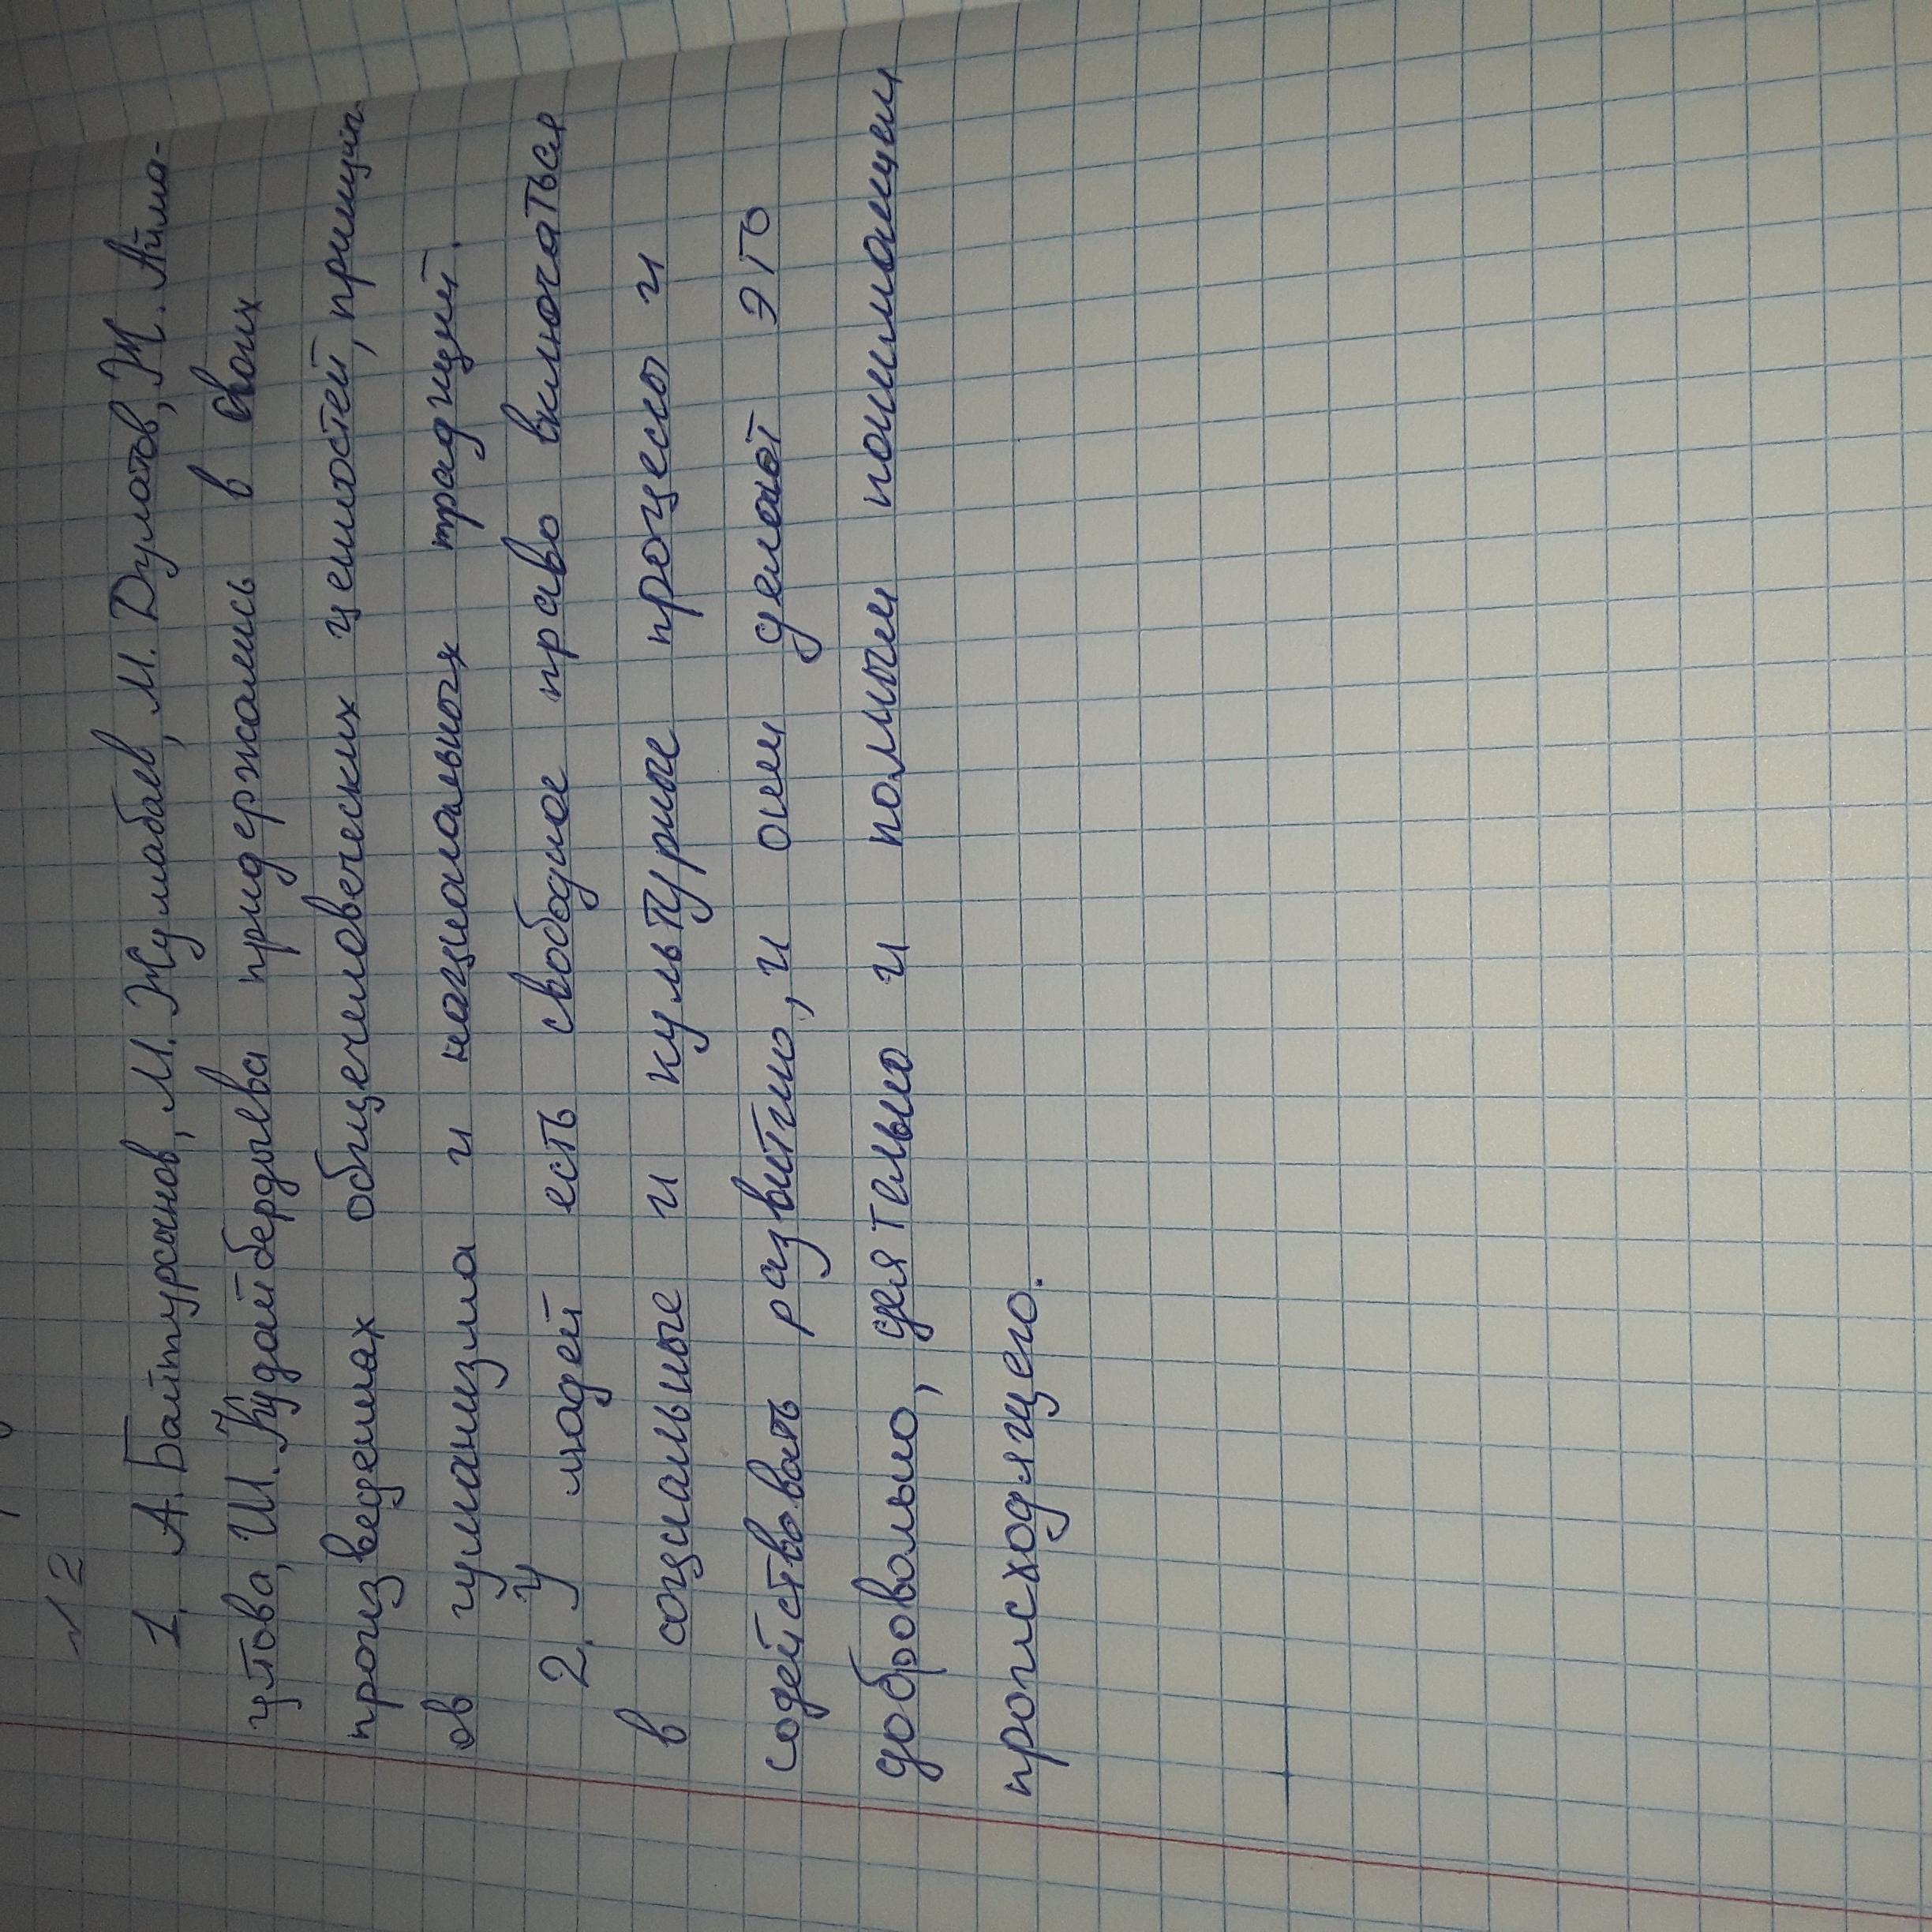 № 2
1. А. Байтурсынов, М. Жумабаев, М. Дулатов, Ж. Айма-
утова, Ш. Кудайбердыева придержались в своих
произведениях общечеловеческих ценностей, принцип
ов гуманизма и национальных традиций.
2. У людей есть свободное право включаться
в социальные и культурные процессы и
содействовать развитию, и они делают это
добровольно, деятельно и полным пониманием
происходящего.